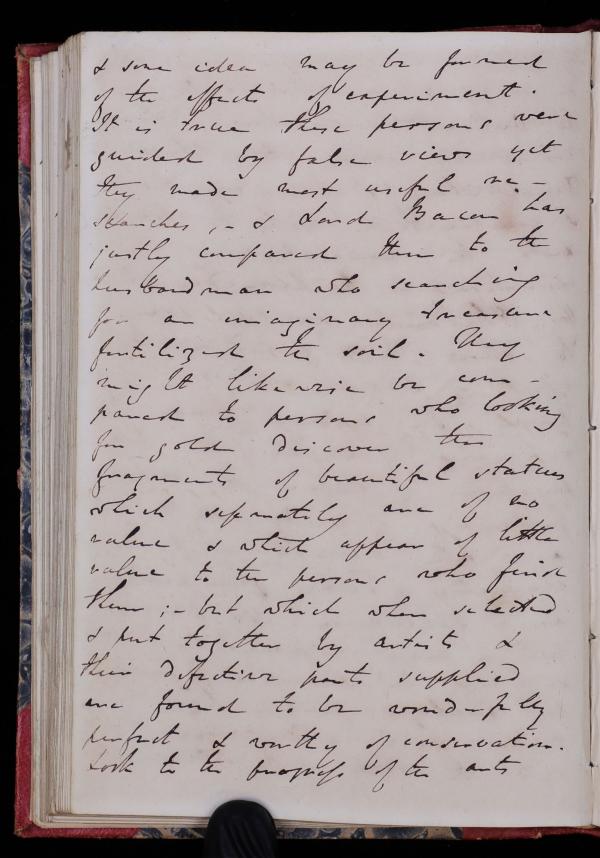 & some idea may be formed
of the effects of experiment.
It is true these persons were
guided by false views yet
they made most useful re-
searches, - & Lord Bacon has
justly compared them to the
husbandman who searching
for an imaginary treasure
fertilized the soil. They
might likewise be com-
pared to persons who looking
for gold discover the
fragments of beautiful statues
which separately are of no
value & which appear of little
value to the persons who find
them; - but which when selected
& put together by artists &
their defective parts supplied
are found to be wonderfully
perfect & worthy of conservation.
Look to the progress of the arts